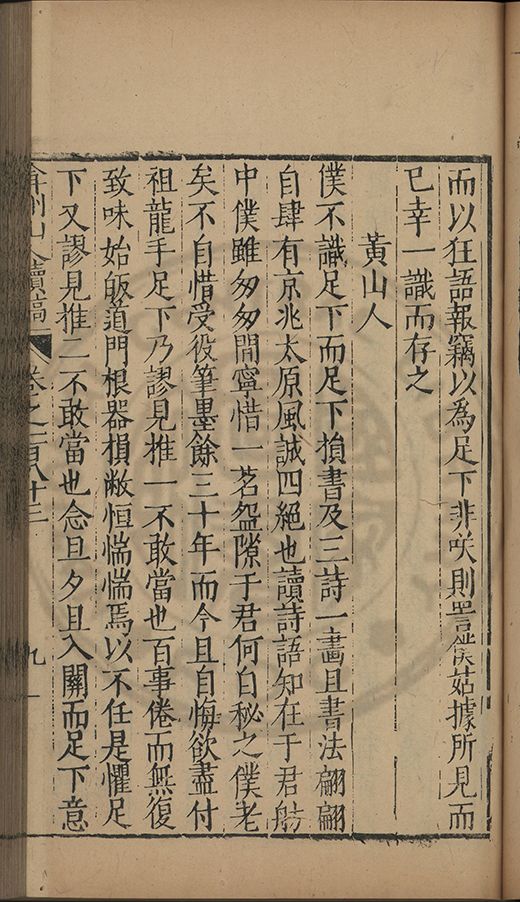 而以狂語報竊以為足下非咲則詈僕姑據所見而
已幸一識而存之
黃山人
僕不識足下而足下損書及三詩一畫且書法翩翩
自肆有京兆太原風誠四絕也讀詩語知在于君舫
中僕雖匆匆間寧惜一茗盌隙于君何自秘之僕老
矣不自惜受役筆墨餘三十年而今且自悔欲盡付
祖龍手足下乃謬見推一不敢當也百事倦而無復
致味始皈道門根器損敝恒惴惴焉以不任是懼足
下又謬見推二不敢當也念旦夕且入關而足下意
弇州山人續稿 卷之一百八十三 九